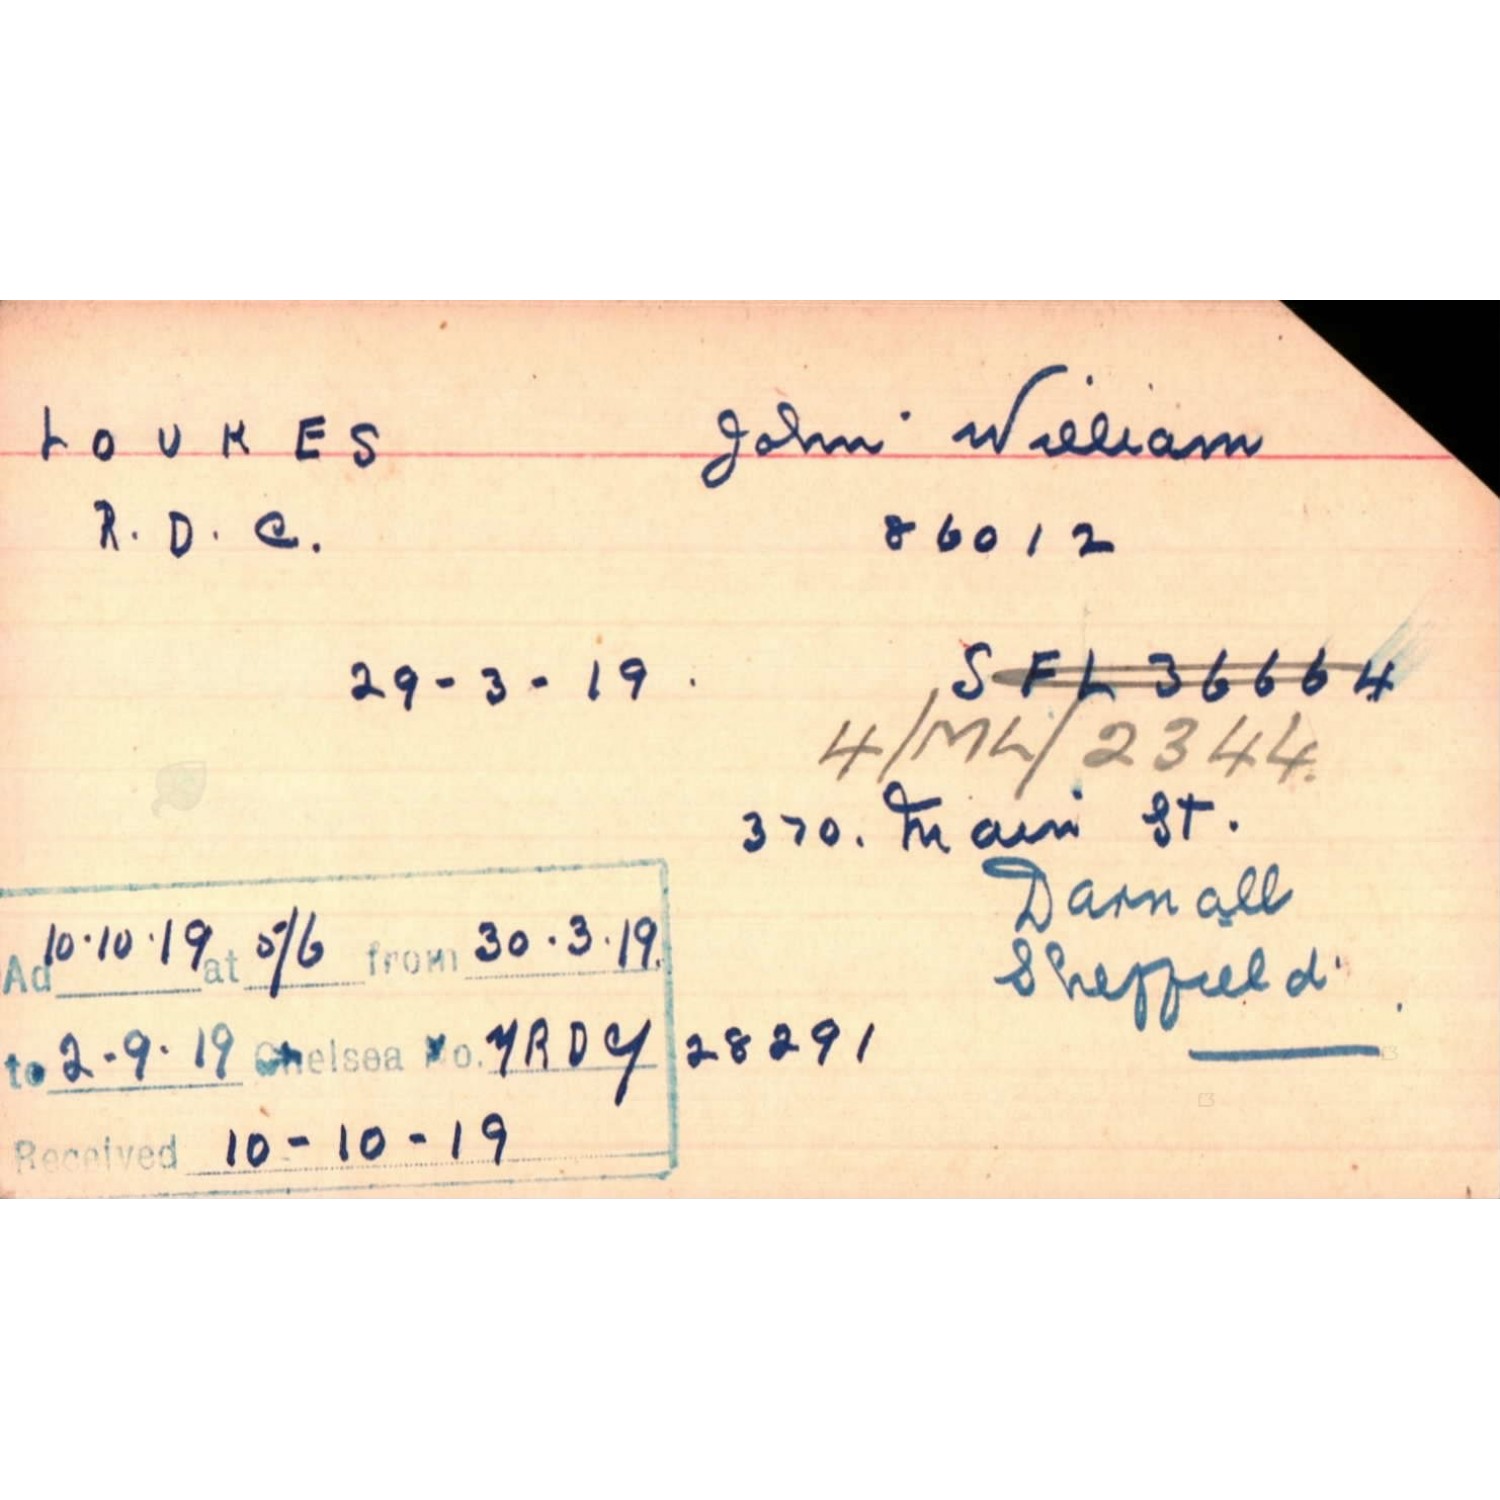 LOUKES John William
R. D. C. 86012
29-3-19. SFL 36664
4/ML/2344.
370. Main St.
Darnall
Sheffield.
Ad 10.10.19 at 5/6 from 30.3.19.
to 2.9.19 Chelsea No. 4RDC/ 28291
Received 10-10-19